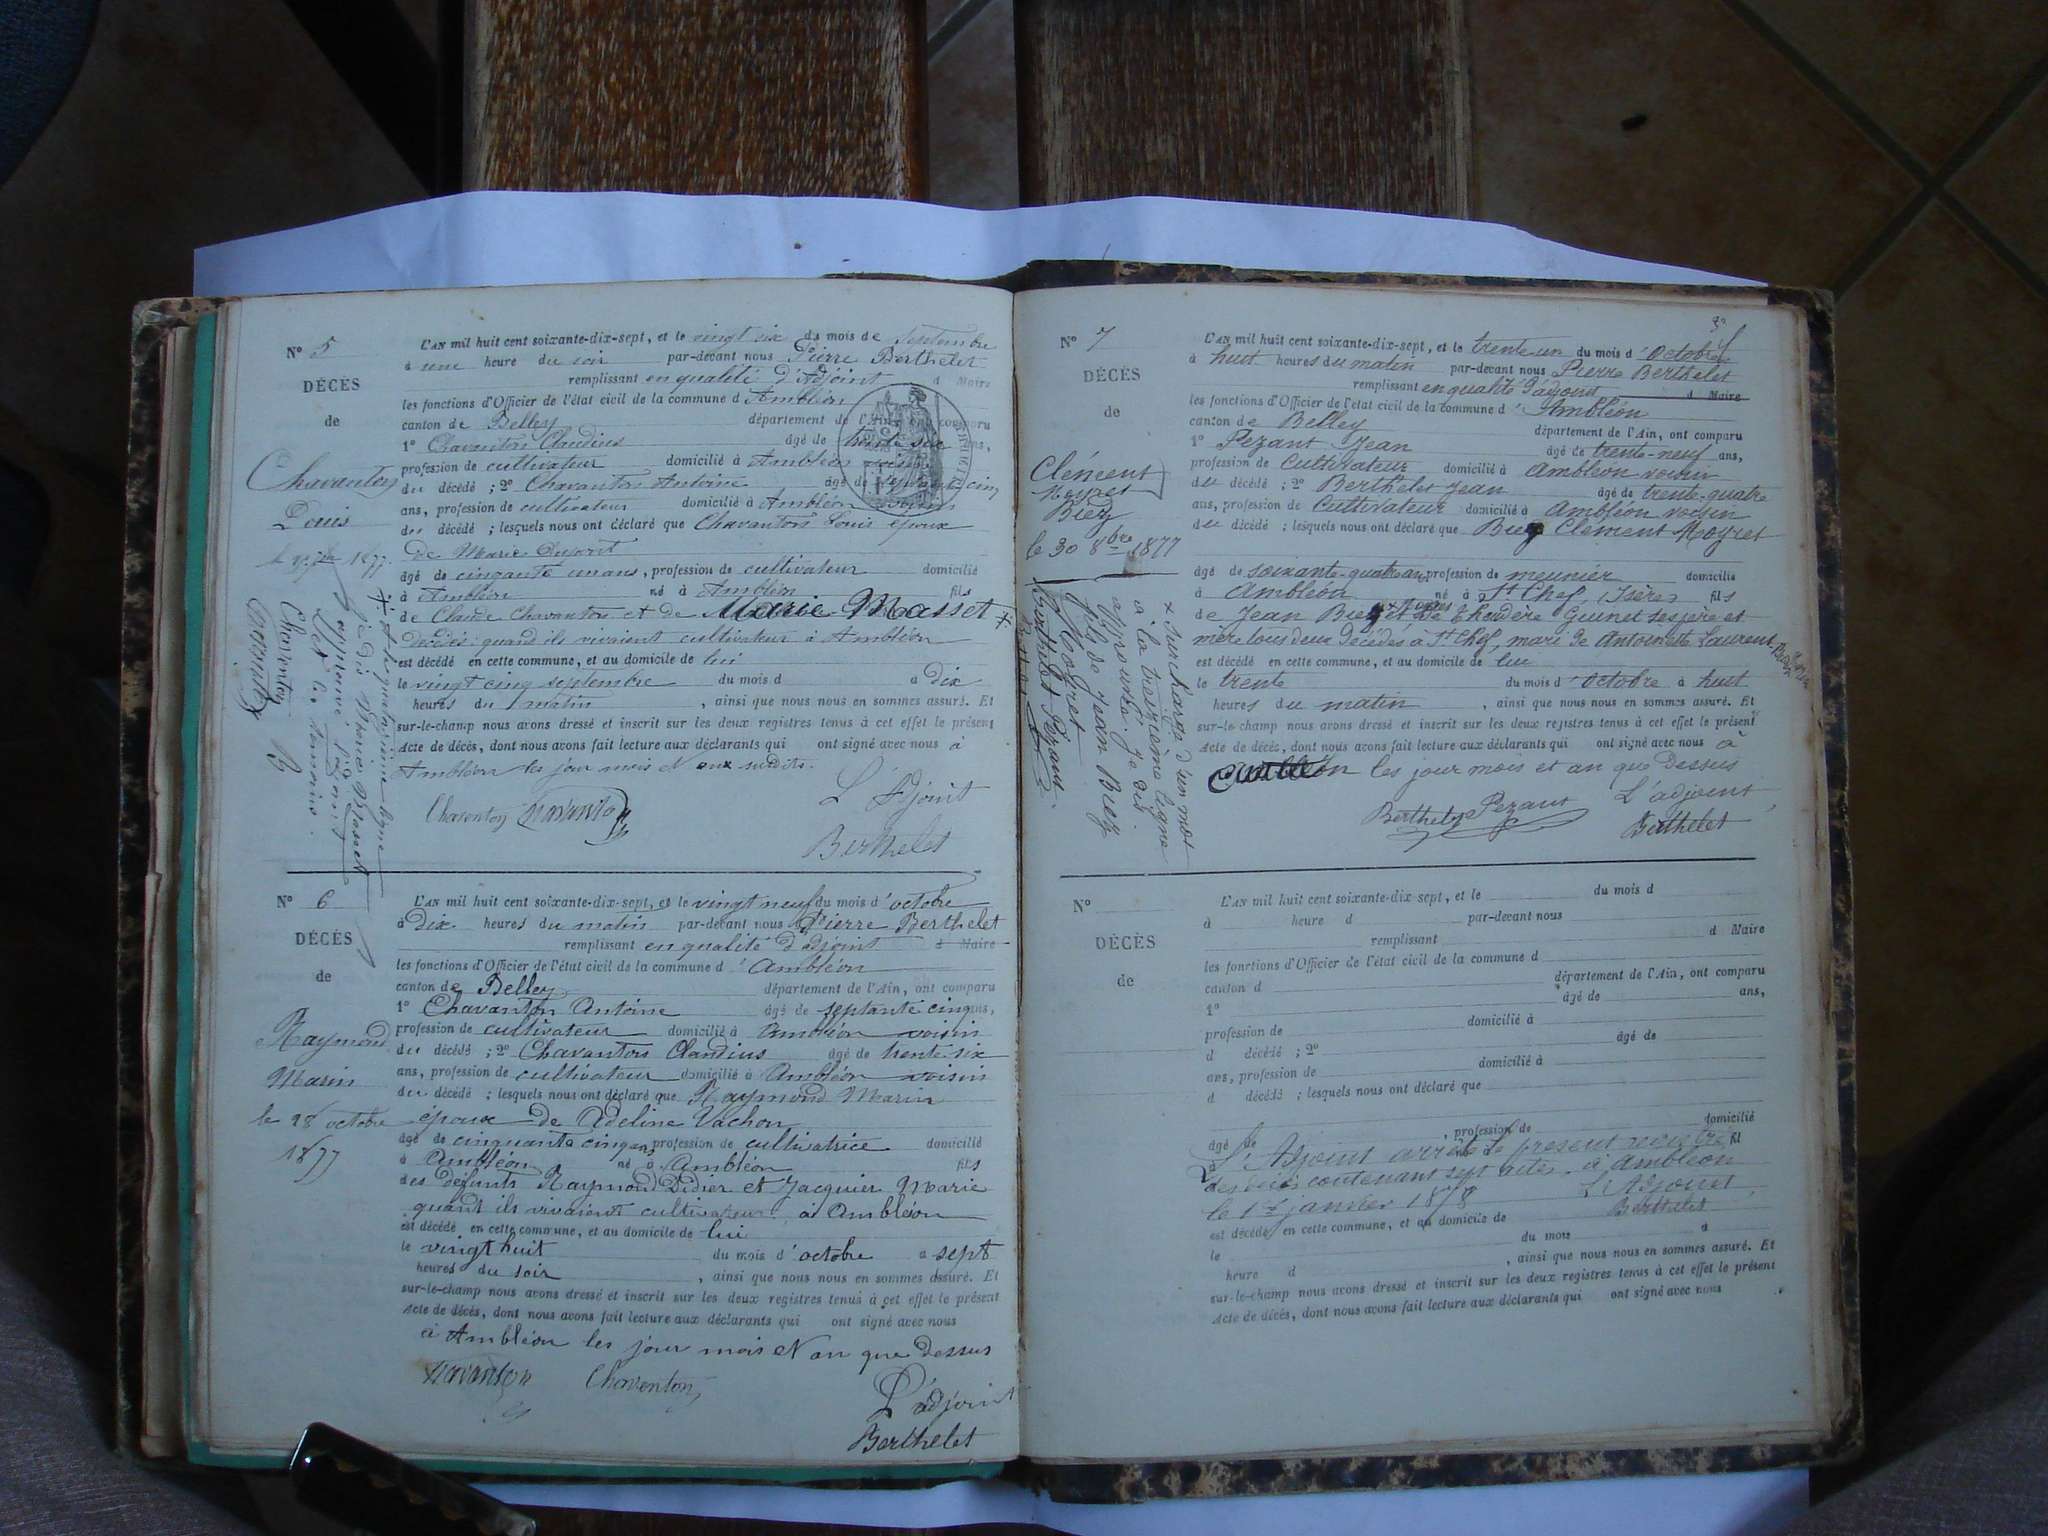 Nº 5
DÉCÈS
de
Chavanton
Louis
L'AN mil huit cent soixante-dix-sept, et le vingt six du mois de septembre
à une heure du soir par-devant nous Pierre Berthelet
remplissant en qualité d'Adjoint d Maire
les fonctions d'Officier de l'état civil de la commune d'Ambléon
canton de Belley département de l'Ain, ont comparu
1º Chavanton Claudius âgé de trente six ans,
profession de cultivateur domicilié à Ambléon voisin
du décédé ; 2º Chavanton Antoine âgé de septante cinq
ans, profession de cultivateur domicilié à Ambléon voisin
du décédé ; lesquels nous ont déclaré que Chavanton Louis époux
de Marie Dupont
âgé de cinquante un ans, profession de cultivateur domicilié
à Ambléon né à Ambléon fils
de Claude Chavanton et de Marie Masset
décédés quand ils vivaient cultivateur à Ambléon
est décédé en cette commune, et au domicile de lui
le vingt cinq septembre du mois d à dix
heures du matin, ainsi que nous nous en sommes assuré. Et
sur-le-champ nous avons dressé et inscrit sur les deux registres tenus à cet effet le présent
Acte de décès, dont nous avons fait lecture aux déclarants qui ont signé avec nous à
Ambléon les jour mois et aux susdits.
L'Adjoint
Chavanton Chavanton
Berthelet
Nº 6
DÉCÈS
de
Raymond
Marin
le 28 octobre
1877
L'AN mil huit cent soixante-dix-sept, et le vingt neuf du mois d'octobre
à dix heures du matin par-devant nous Pierre Berthelet
remplissant en qualité d'adjoint d Maire
les fonctions d'Officier de l'état civil de la commune d'Ambléon
canton de Belley département de l'Ain, ont comparu
1º Chavanton Antoine âgé de septante cinq ans,
profession de cultivateur domicilié à Ambléon voisin
du décédé ; 2º Chavanton Claudius âgé de trente six
ans, profession de cultivateur domicilié à Ambléon voisin
du décédé ; lesquels nous ont déclaré que Raymond Marin
époux de Adeline Vachon
âgé de cinquante cinq ans profession de cultivatrice domicilié
à Ambléon né à Ambléon fils
des défunts Raymond Didier et Jacquier Marie
quant ils vivaient cultivateur à Ambléon
est décédé en cette commune, et au domicile de lui
le vingt huit du mois d'octobre à sept
heures du soir, ainsi que nous nous en sommes assuré. Et
sur-le-champ nous avons dressé et inscrit sur les deux registres tenus à cet effet le présent
Acte de décès, dont nous avons fait lecture aux déclarants qui ont signé avec nous
à Ambléon les jour mois et an que dessus
Chavanton Chavanton
L'adjoint
Berthelet
Nº 7
DÉCÈS
de
Clément
Moyret
Biez
le 30 8bre 1877
x surcharge d'un mot
à la treizième ligne
approuvé. Je dis
fils de Jean Biez
Moyret
Berthelet Pezant
L'AN mil huit cent soixante-dix-sept, et le trente-un du mois d'Octobre
à huit heures du matin par-devant nous Pierre Berthelet
remplissant en qualité d'adjoint d Maire
les fonctions d'Officier de l'état civil de la commune d'Ambléon
canton de Belley département de l'Ain, ont comparu
1º Pezant Jean âgé de trente-neuf ans,
profession de Cultivateur domicilié à Ambléon voisin
du décédé ; 2º Berthelet Jean âgé de trente-quatre
ans, profession de Cultivateur domicilié à Ambléon voisin
du décédé ; lesquels nous ont déclaré que Biez Clément Moyret
âgé de soixante-quatre ans profession de meunier domicilié
à Ambléon né à St Chef, Isère fils
de Jean Biez et de Guinet ses père et
mère tous deux décédés à St Chef, mari de Antoinette Laurent
est décédé en cette commune, et au domicile de lui
le trente du mois d'Octobre à huit
heures du matin, ainsi que nous nous en sommes assuré. Et
sur-le-champ nous avons dressé et inscrit sur les deux registres tenus à cet effet le présent
Acte de décès, dont nous avons fait lecture aux déclarants qui ont signé avec nous à
Ambléon les jour mois et an que dessus
Berthelet Pezant L'adjoint
Berthelet
Nº
DÉCÈS
de
L'AN mil huit cent soixante-dix-sept, et le du mois d
à heure d par-devant nous
remplissant d Maire
les fonctions d'Officier de l'état civil de la commune d
canton d département de l'Ain, ont comparu
1º âgé de ans,
profession de domicilié à
d décédé ; 2º âgé de
ans, profession de domicilié à
d décédé ; lesquels nous ont déclaré que
âgé de , profession de domicilié
L'Adjoint arrête le présent registre
des décès contenant sept actes à Ambléon
le 1er janvier 1878 L'Adjoint
Berthelet
est décédé en cette commune, et au domicile de
le du mois à
heure d , ainsi que nous nous en sommes assuré. Et
sur-le-champ nous avons dressé et inscrit sur les deux registres tenus à cet effet le présent
Acte de décès, dont nous avons fait lecture aux déclarants qui ont signé avec nous